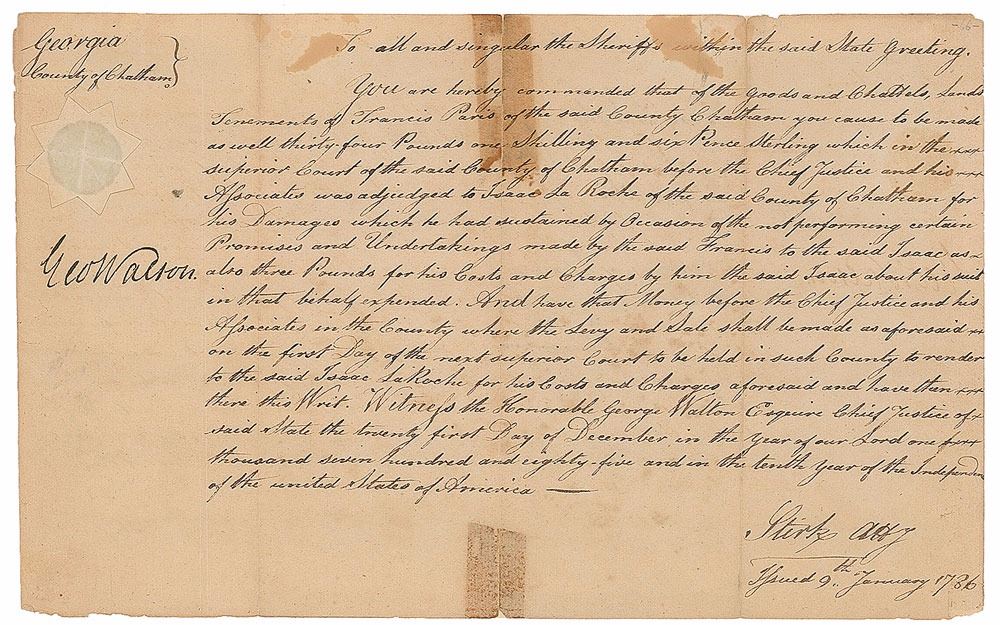 Georgia
County of Chatham }
To all and singular the Sheriffs within the said State Greeting.
You are hereby commanded that of the goods and Chattels, Lands
Tenements of Francis Paris of the said County Chatham you cause to be made
as well thirty four Pounds one Shilling and six Pence Sterling which in the
superior Court of the said County of Chatham before the Chief Justice and his
Associates was adjudged to Isaac La Roche of the said County of Chatham for
his Damages which he had sustained by Occasion of the not performing certain
Promises and Undertakings made by the said Francis to the said Isaac as
also three Pounds for his Costs and Charges by him the said Isaac about his suit
in that behalf expended. And have that Money before the Chief Justice and his
Associates in the County where the Levy and Sale shall be made as aforesaid
on the first Day of the next superior Court to be held in such County to render
to the said Isaac LaRoche for his Costs and Charges aforesaid and have then
there this Writ. Witness the Honorable George Walton Esquire Chief Justice of
said State the twenty first Day of December in the Year of our Lord one
thousand seven hundred and eighty-five and in the tenth Year of the Independen
of the united States of America —
Geo Walton
Stirk Atty
Issued 9th January 1786